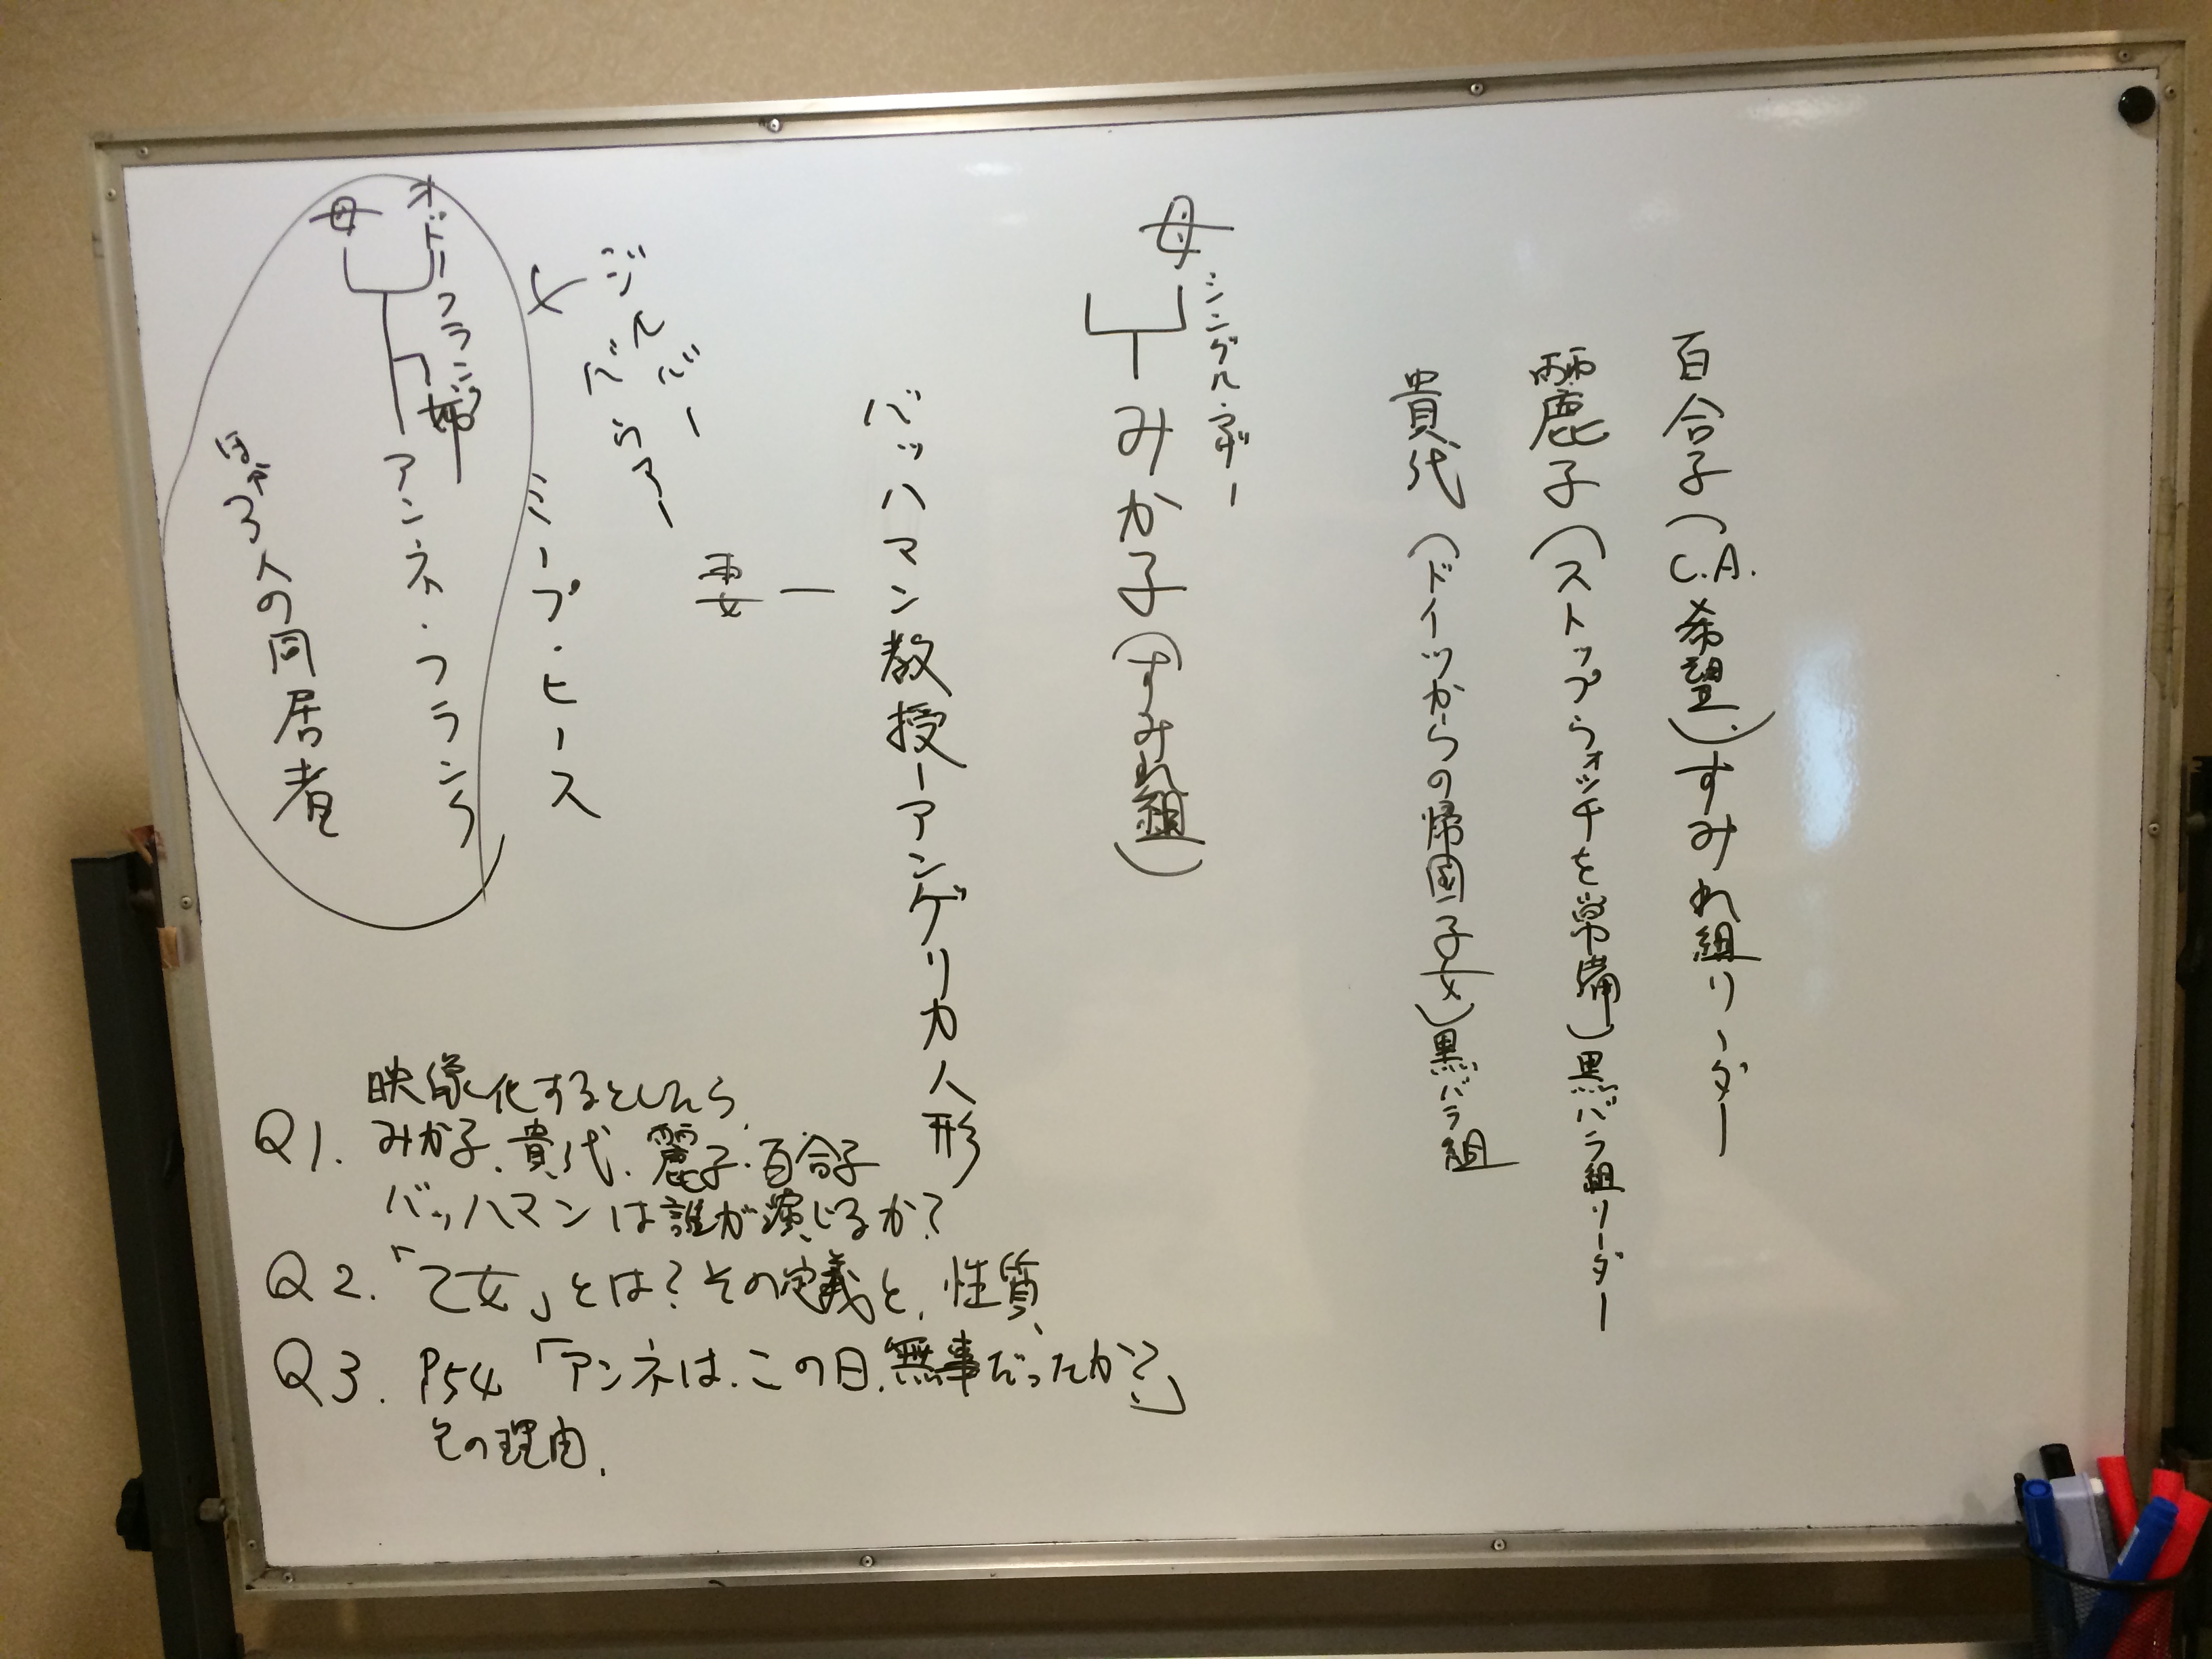 百合子(C.A.希望)すみれ組リーダー
麗子(ストップウォッチを常備)黒バラ組リーダー
貴代(ドイツからの帰国子女)黒バラ組
母
シングル・マザー
みか子(すみれ組)
バッハマン教授ーアンゲリカ人形
妻
ジルバー
バウアー
ミープ・ヒース
オットーフランク
母
姉
アンネ・フランク
3人の同居者
映像化するとしたら、
Q1. みか子、貴代、麗子・百合子
バッハマンは誰が演じるか?
Q2.「乙女」とは?その定義と、性質、
Q3. P54「アンネは、この日、無事だったか?」
その理由.